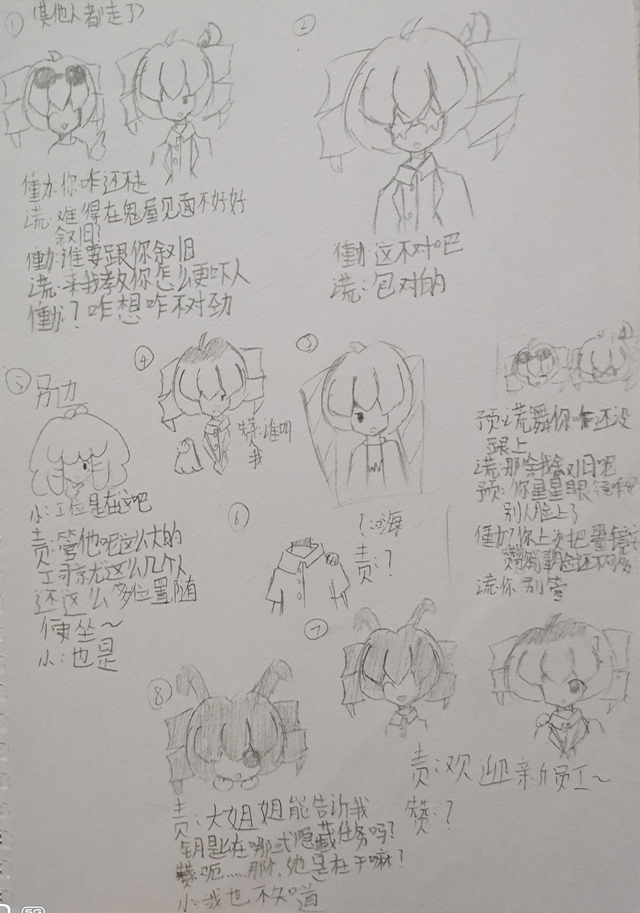 ① 其他人都走了
慟:你咋还不走
谎:难得在鬼屋见面不好好
叙旧?
慟:谁要跟你叙旧
谎:来我教你怎么更吓人
慟:?咋想咋不对劲
②
慟:这不对吧
谎:包对的
预:谎舞你咋还没
跟上
谎:那个我叙旧吧
预:你星星眼镜
别人脸上了
慟:你上次把
谎:你别管
③
④
赞:谁叫
我
⑤
小:工位是在这吧
责:管他呢这么大的
公司就这么几个人
还这么多位置随
便坐~
小:也是
⑥
责:?
⑦
责:欢迎新员工~
赞:?
⑧
责:大姐姐能告诉我
钥匙在哪或隐藏任务吗?
赞:呃……那啥,她是在干嘛?
小:我也不知道